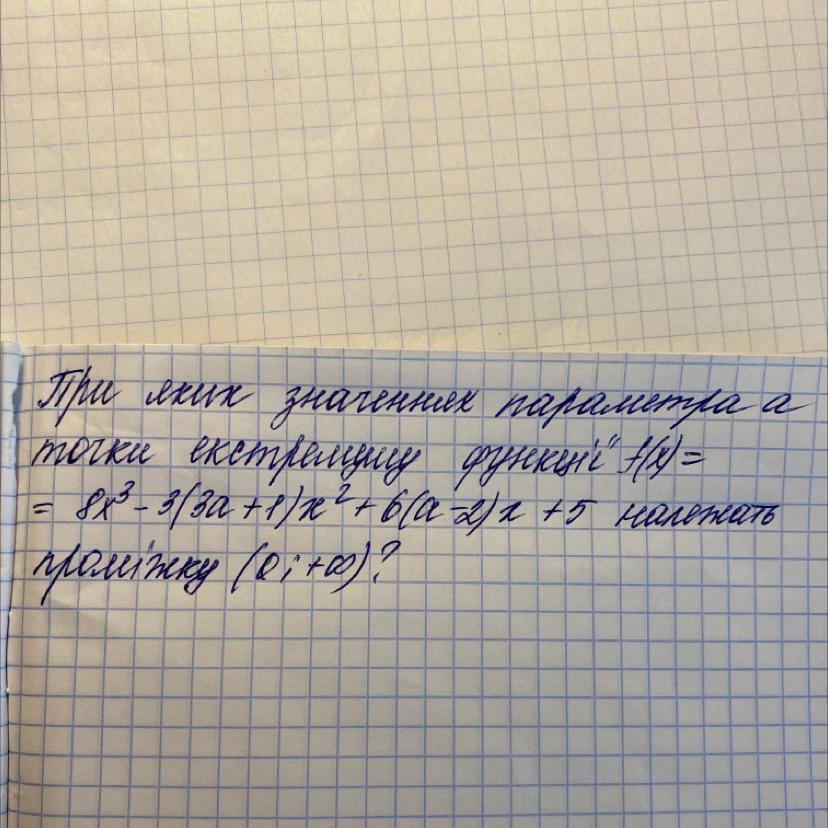 При яких значеннях параметра a
точки екстремуму функції f(x)=
= 8x³ - 3(3a+1)x² + 6(a-2)x + 5 належать
проміжку (0; +∞)?